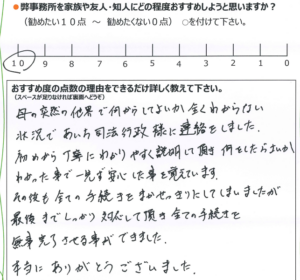 ●弊事務所を家族や友人・知人にどの程度おすすめしようと思いますか?
(勧めたい10点 ~ 勧めたくない0点) ○を付けて下さい。
10 9 8 7 6 5 4 3 2 1 0
おすすめ度の点数の理由をできるだけ詳しく教えて下さい。
(スペースが足りなければ裏面へどうぞ)
母の突然の他界で何からしてよいか全くわからない
状況であいち司法行政様に連絡をしました。
初めから丁寧にわかりやすく説明して頂き何をしたらよいか
わかった事で一先ず安心した事を覚えています。
その後も全ての手続きをまかせっきりにしてしまいましたが
最後までしっかり対応して頂き全ての手続きを
無事完了させる事ができました。
本当にありがとうございました。